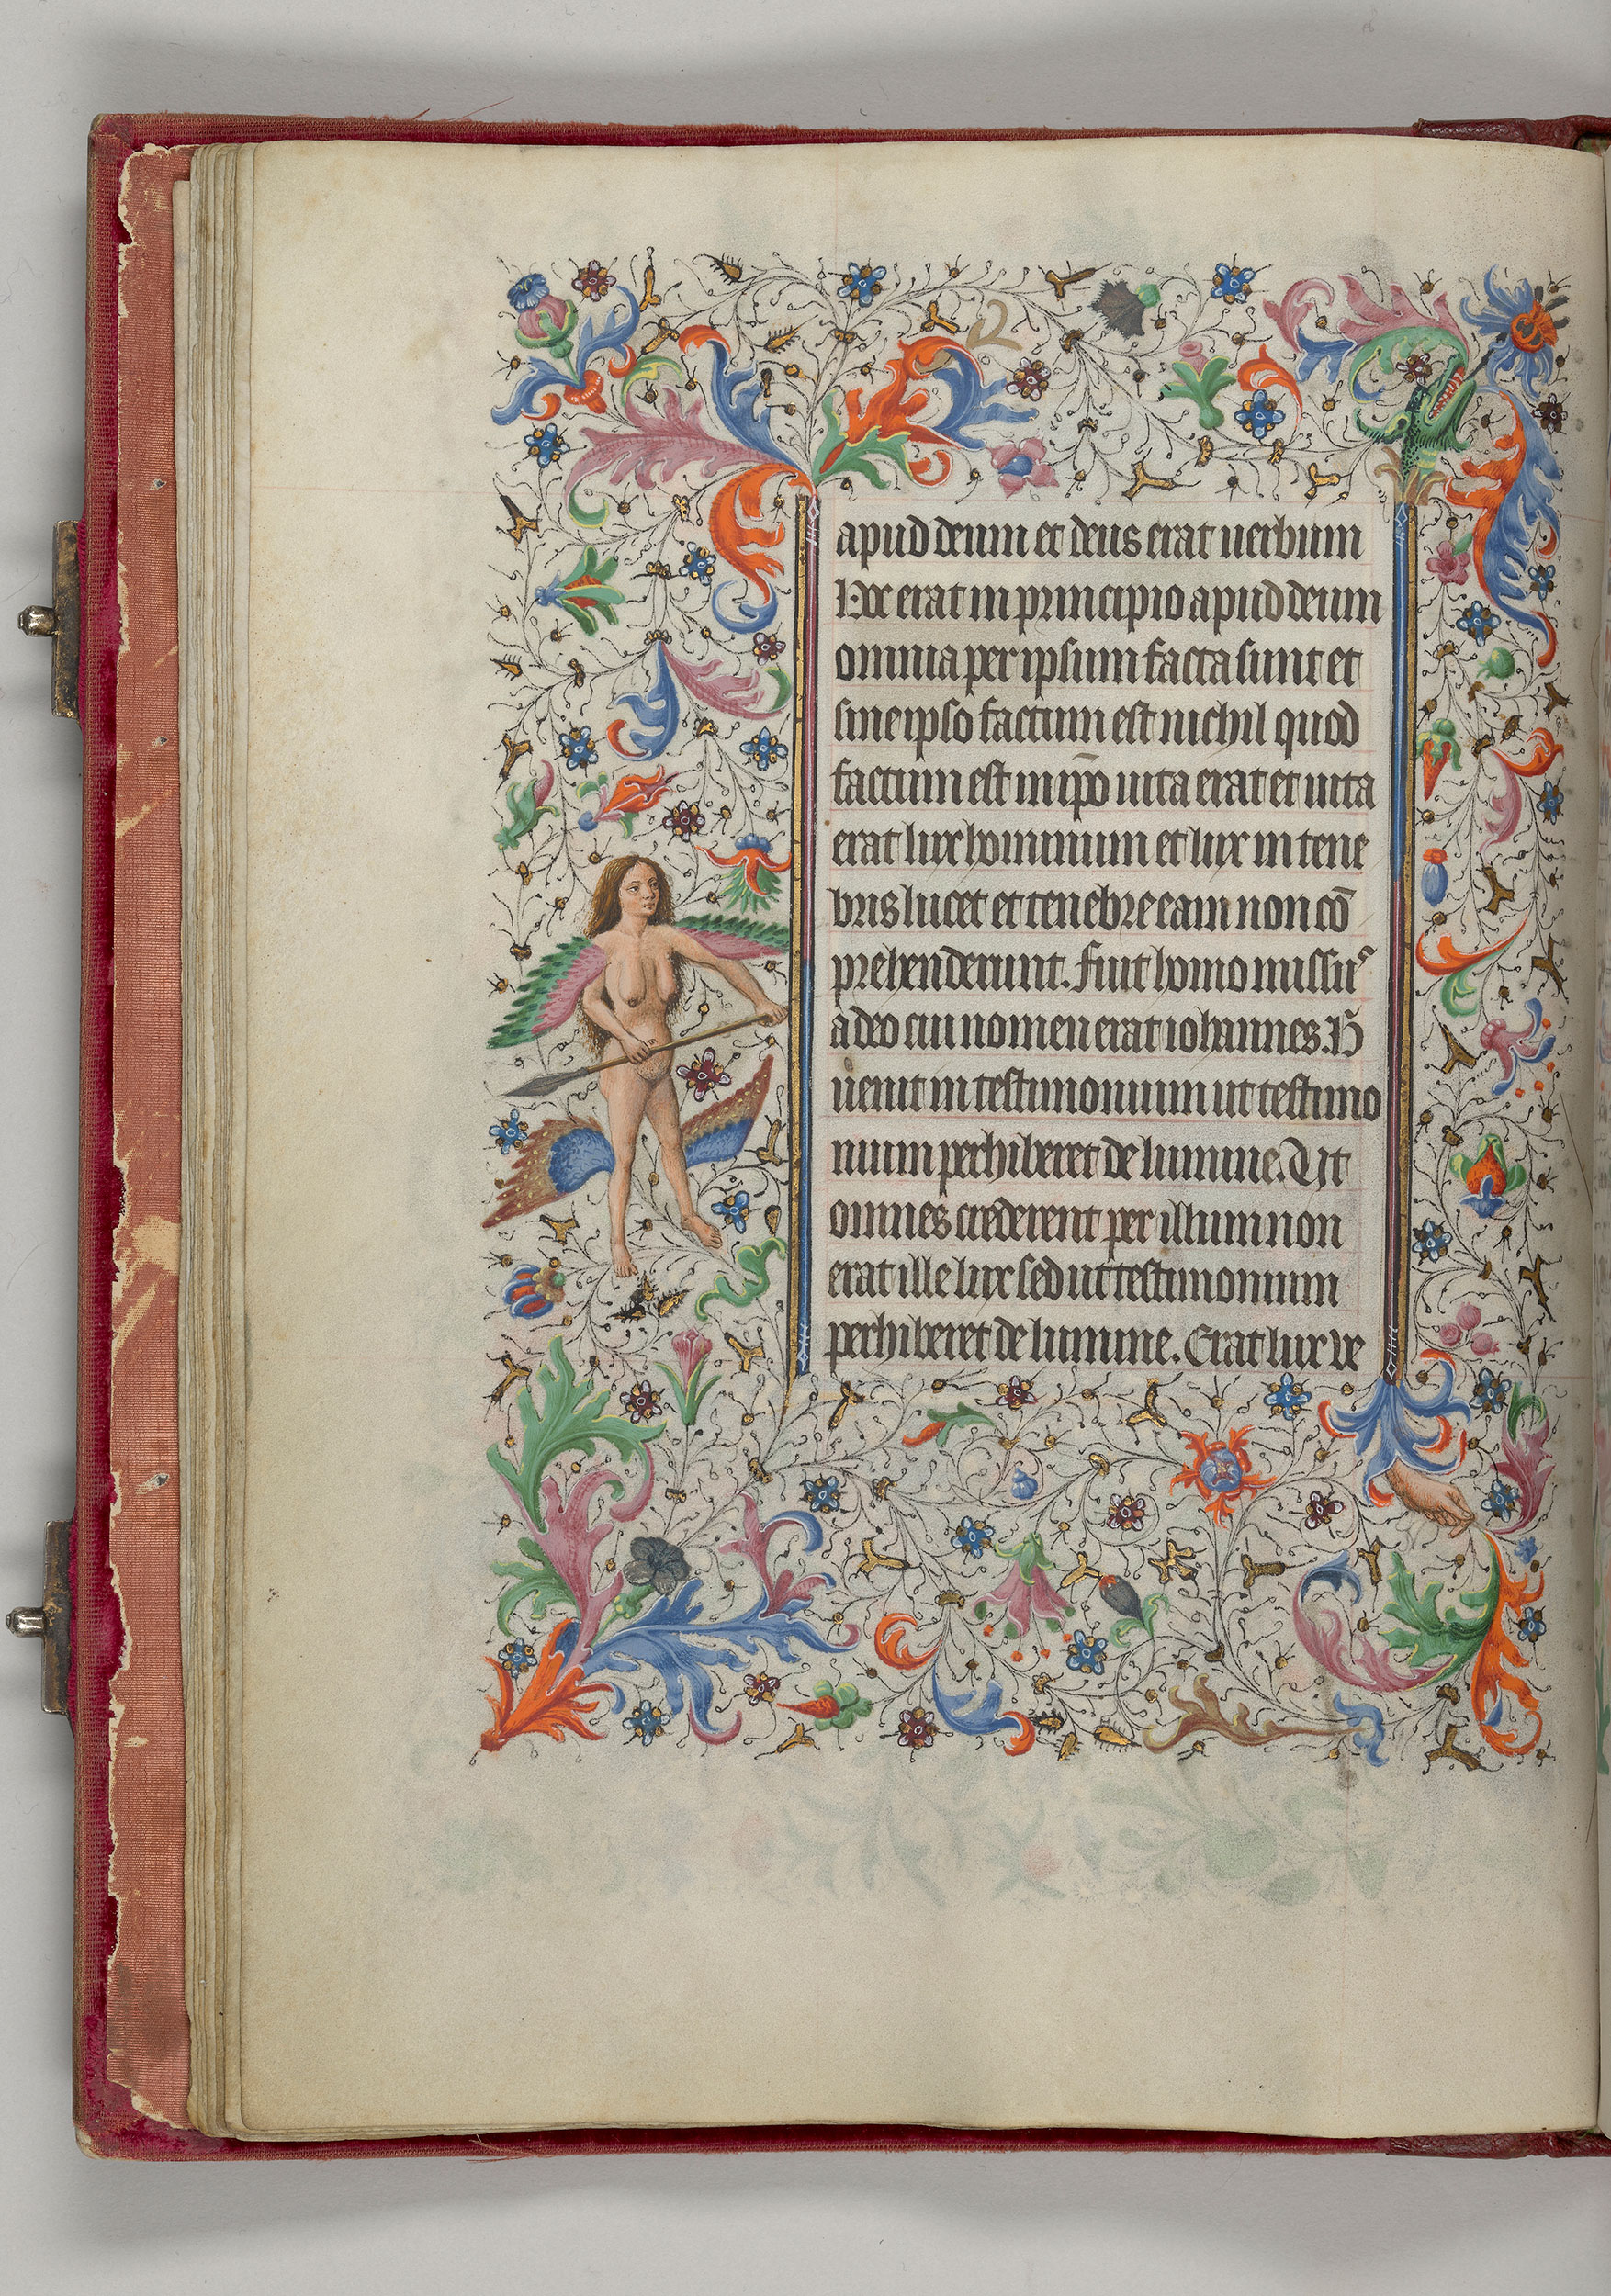 apud deum et deus erat uerbum
Hoc erat in principio apud deum
omnia per ipsum facta sunt et
sine ipso factum est nichil quod
factum est in ip̄o uita erat et uita
erat lux hominum et lux in tene
bris lucet et tenebre eam non cō
prehenderunt. fuit homo missus
a deo cui nomen erat iohannes. H̄
uenit in testimonium ut testimo
nium perhiberet de lumine. Ut
omnes crederent per illum non
erat ille lux sed ut testimonium
perhiberet de lumine. Erat lux ve